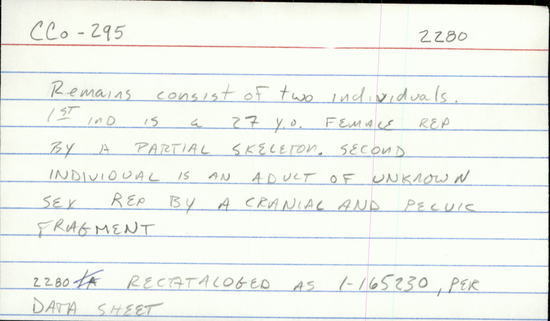 CCo - 295 2280
Remains consist of two individuals.
1ST IND IS a 27 y.o. FEMALE REP
BY A PARTIAL SKELETON. SECOND
INDIVIDUAL IS AN ADULT OF UNKNOWN
SEX REP BY A CRANIAL AND PELVIC
FRAGMENT
2280 RECATALOGED AS 1-165230, PER
DATA SHEET